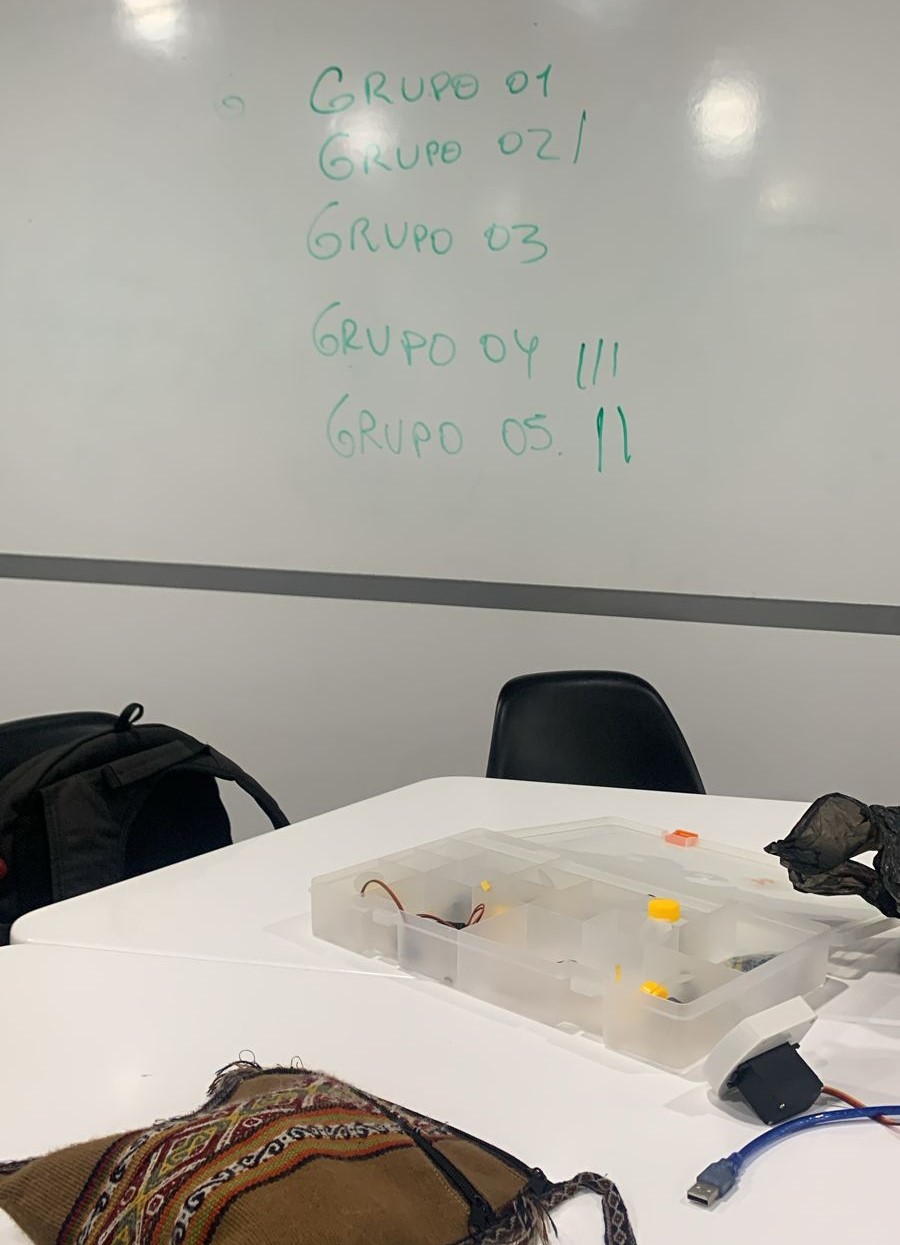 GRUPO 01
GRUPO 02 /
GRUPO 03
GRUPO 04 |||
GRUPO 05. ||